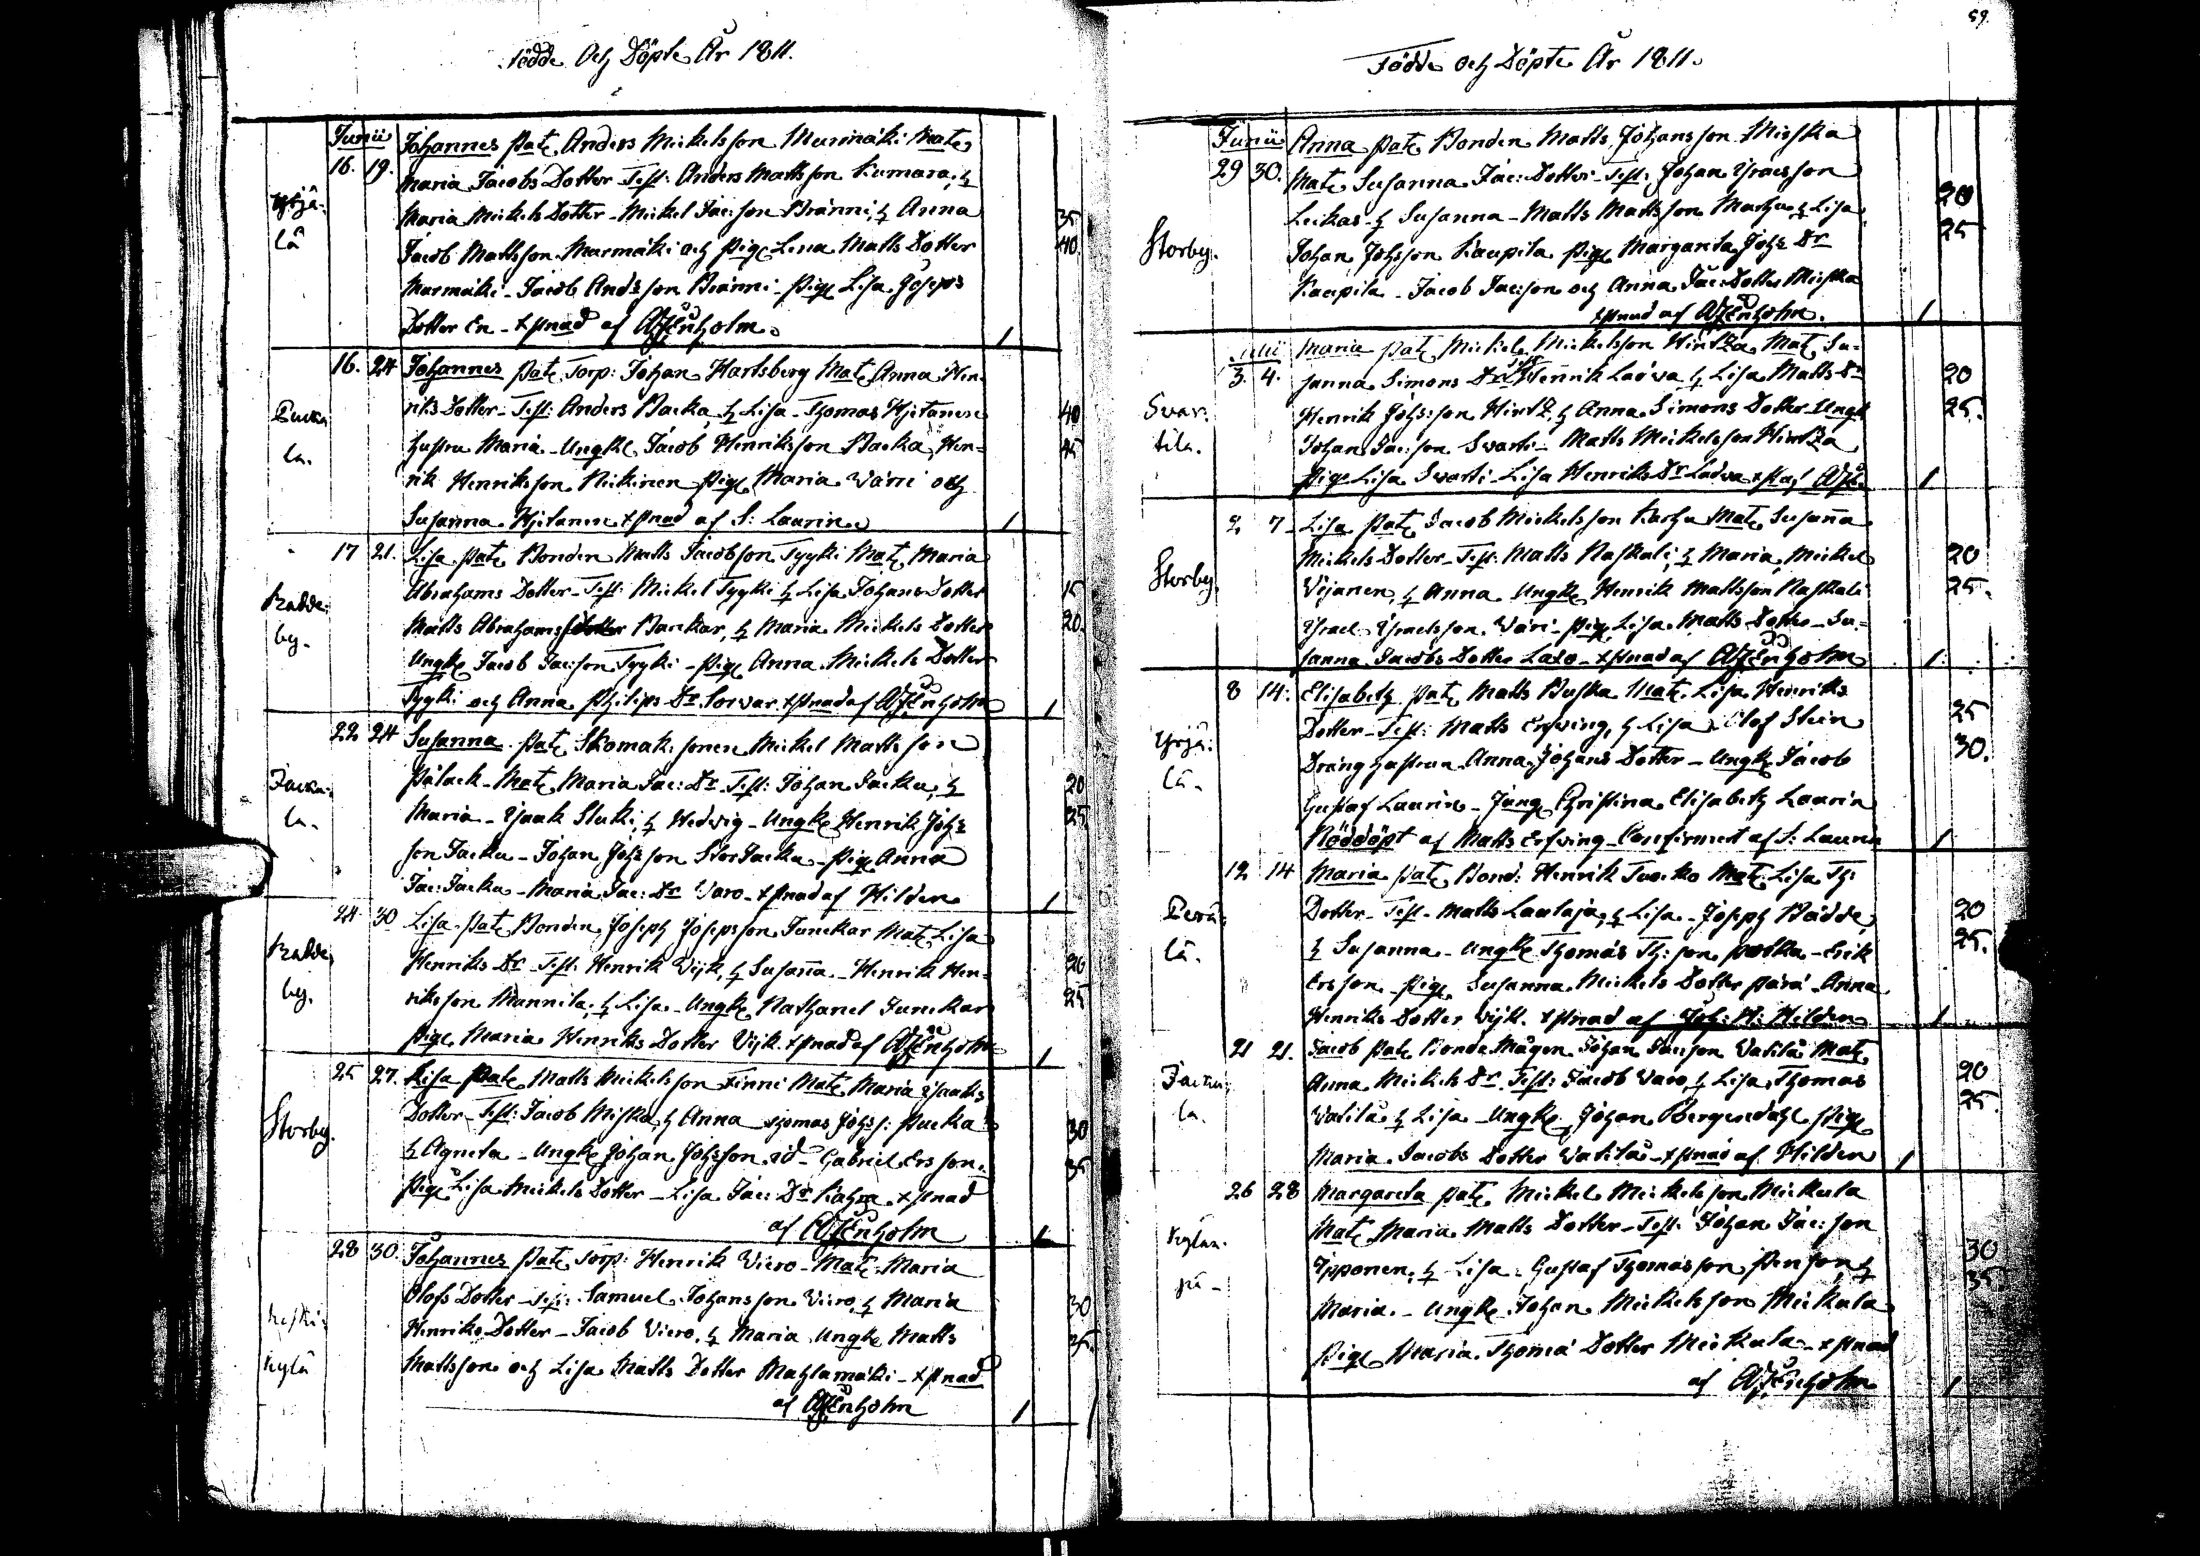 Födde och Döpte År 1811.
Junii
16. 19. Johannes Pat. Anders Mickelsson Murmäki Mat.
Maria Jacobs Dotter - Test: Anders Mattsson Kumara, h
Yrjä- Maria Mickels Dotter - Mickel Jac:son Bränni, h Anna 35
lä Jacob Mattsson Marmäki och Pig. Lena Matts Dotter 40.
Marmäki - Jacob And:sson Bränni - Pig. Lisa Josephs
Dotter En - Xstnad af Enholm. 1
16. 24 Johannes Pat. Torp: Johan Hartsberg Mat. Anna Hen-
riks Dotter - Test: Anders Backa, h Lisa - Thomas Hjitanen 40
Hustru Maria - Ungk. Jacob Henriksson Backa, Hen- 45
la. rik Henriksson Pig. Maria Wäri och
Susanna Hjitanen Xstnad af S: Laurin 1
17 21. Lisa. Pat. Bonden Matts Jacobsson Tyyki Mat. Maria
Radde- Abrahams Dotter - Test: Mickel Tyyki h Lisa Johans Dotter 15
by. Matts Abrahams Backar, h Maria Mickels Dotter 20.
Ungk. Jacob Jac:son Tyyki - Pig. Anna Mickels Dotter
Tyyki och Anna Philips Dr. Xstnad af Enholm 1
22 24 Susanna. Pat. Skomak: sonen Mickel Mattsson
Mat. Maria Jac: Dr. Test: Johan Jacku, h 20
la. Maria - Isaak h Hedvig - Ungk. Henrik Joh: 25
son Jacku - Johan Joh:son Jacku - Pig. Anna
Jac: Jacku - Maria Jac: Dr Varo - Xstnad af Hilden 1
24 30 Lisa. Pat. Bonden Joseph Josepsson Junckar Mat. Lisa
Radde- Henriks Dr - Test: Henrik Vijk, h Susanna - Henrik Hen- 20
by. riksson Mannila, h Lisa - Ungk. Nathanel Junckar 25
Pig. Maria Henriks Dotter Vijk. Xstnad af Enholm 1
25 27. Lisa Pat. Matts Mickelsson Finni Mat. Maria Isaaks
Storby. Dotter - Test: Jacob Miska, h Anna Thomas Joh:s: Packa 30
h Agneta - Ungk. Johan Joh:sson. id - Gabriel Ersson. 35
Pig. Lisa Mickels Dotter - Lisa Jac: Dr Xstnad
af Enholm 1
28 30. Johannes Pat. Torp: Henrik Viero - Mat. Maria
Olofs Dotter - Test: Samuel Johansson Viero, h Maria 30
Keski- Henriks Dotter - Jacob Viero, h Maria Ungk. Matts 35.
kylä Mattsson och Lisa Matts Dotter Mahlamäki - Xstnad
af Enholm 1
59.
Födde och Döpte År 1811.
Junii
29 30. Anna Pat. Bonden Matts Johansson Miska
Mat. Susanna Jac: Dotter - Test: Johan Israelsson
Leikas - h Susanna - Matts Mattsson h Lisa 20
Storby. Johan Joh:sson Kaupila Pig. Margareta Joh:s Dr 25
Kaupila - Jacob Jac:son och Anna Jac: Dotter Miska
Xstnad af Enholm. 1
Julii
3. 4. Maria Pat. Mickel Mickelsson Hintza Mat. Su-
sanna Simons Dr Henrik Ladva h Lisa Matts Dr 20
Svar- Henrik Joh:sson Hintz, h Anna Simons Dotter Ungk 25.
tila. Johan Jac:son Svarti - Matts Mickelsson Hintza
Pig. Lisa Svarti - Lisa Henriks Dr Ladva 1
2 7 Lisa Pat. Jacob Mickelsson Mat. Susanna
Mickels Dotter - Test: Matts Raskali, h Maria, Mickel 20
Storby. Vijanen, h Anna. Ungk. Henrik Mattsson Raskali 25.
Israel Israelsson Väri - Pig. Lisa Matts Dotter - Su-
sanna Jacobs Dotter - Xstnad af Enholm 1
8 14. Elisabeth Pat. Matts Buska Mat. Lisa Henriks
Dotter - Test: Matts Erfving, h Lisa - Olof Stein 25
Yrjä- Dräng hustrun Anna Johans Dotter - Ungk. Jacob 30.
lä. Gustaf Laurin - Jung. Christina Elisabeth Laurin
Nöddöpt af Matts Erfving - Confirmert af S: Laurin 1
12 14 Maria Pat. Bond: Henrik Mat. Lisa Th:
Perä- Dotter - Test - Matts Laulaja, h Lisa - Joseph Rädde 20
lä. h Susanna - Ungk. Thomas Th:son - Erik 25.
Ersson - Pig. Susanna Mickels Dotter Anna
Henriks Dotter Vijk. Xstnad af Joh: H: Hilden 1
21 21. Jacob Pat. Bonde Mågen Johan Jacsson Vatila Mat.
Anna Mickels Dr. Test: Jacob Varo, h Lisa, Thomas 20
la. Vatila, h Lisa - Ungk. Johan Bergendahl Pig. 25
Maria Jacobs Dotter Vatila - Xstnad af Hilden 1
26 28 Margareta Pat. Mickel Mickelsson Mickula
Mat. Maria Matts Dotter - Test: Johan Jac:son
Ipponen, h Lisa. Gustaf Thomasson h 30
Maria. - Ungk. Johan Mickelsson Mickula 35
Pig. Maria Thoma Dotter Mickula - Xstnad
af Enholm 1